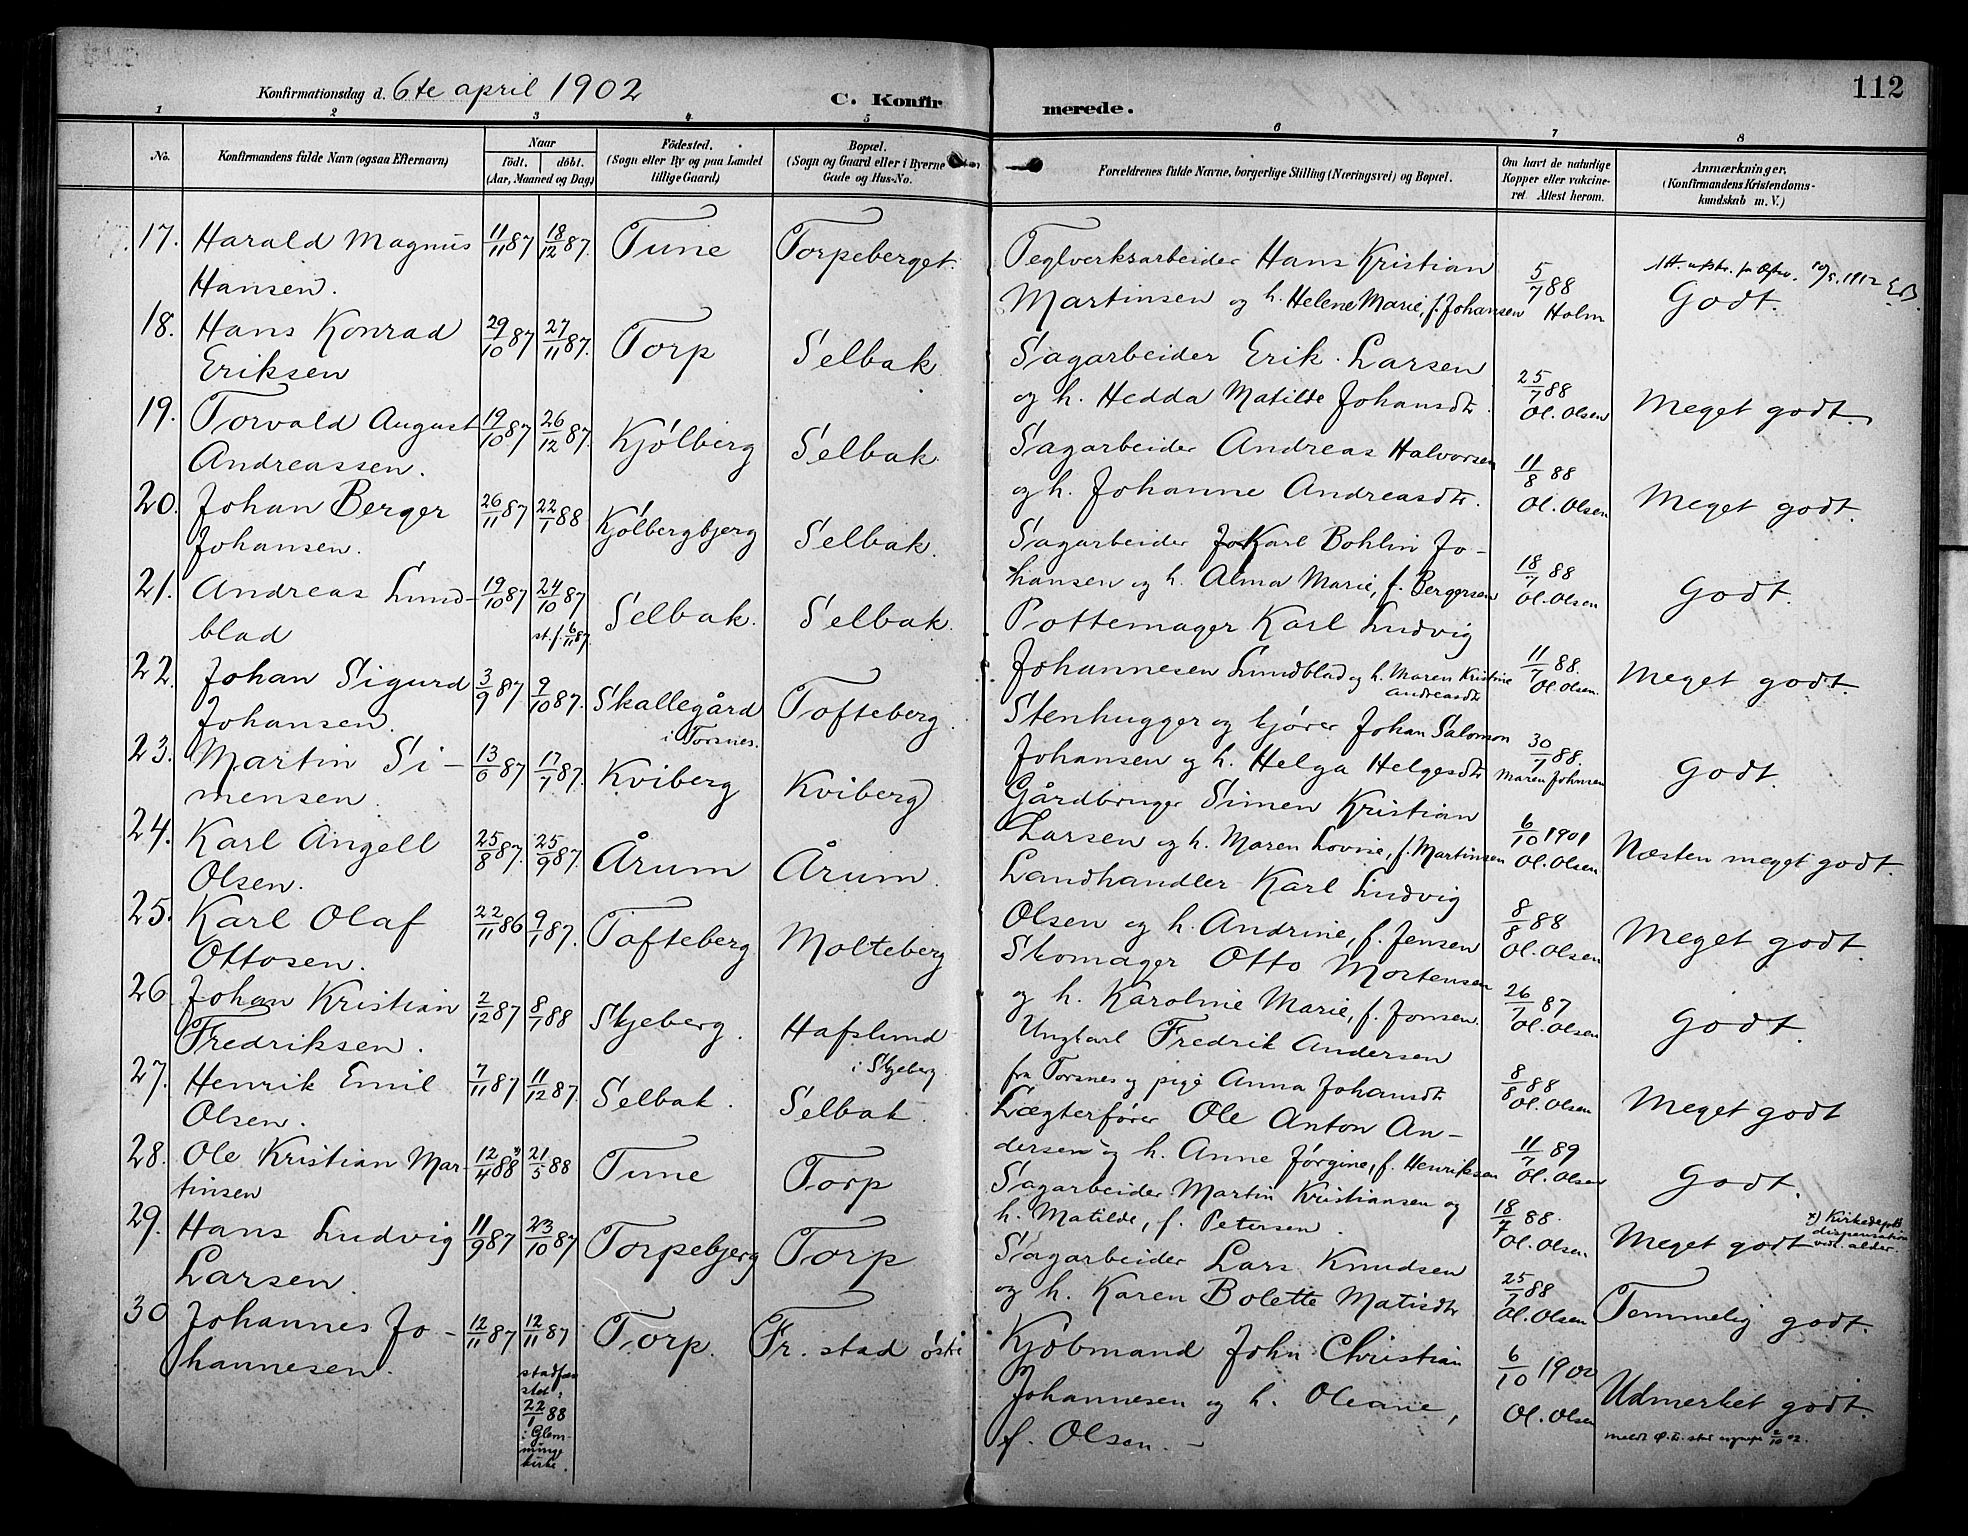 Konfirmationsdag d. 6te april 1902
C. Konfir
merede.
112
1 2 3 4 5 6 7 8
No.
Konfirmandens fulde Navn (ogsaa Efternavn)
Naar
födt. döbt.
(Aar, Maaned og Dag)
Födested.
(Sogn eller By og paa Landet
tillige Gaard)
Bopæl.
(Sogn og Gaard eller i Byerne
Gade og Hus-No.
Forældrenes fulde Navne, borgerlige Stilling (Næringsvei) og Bopæl.
Om havt de naturlige
Kopper eller vakcine-
ret. Attest herom.
Anmærkninger.
(Konfirmandens Kristendoms-
kundskab m. V.)
17. Harald Magnus 11/11 87 18/12 87. Tune Torpeberget.
Hansen.
Teglverksarbeider Hans Kristian
Martinsen og h. Helene Marie, f. Johansen
5/7 88
Holm
1912
Godt.
18. Hans Konrad 29/10 87 27/11 87. Torp Selbak
Eriksen
Sagarbeider Erik Larsen
og h. Hedda Matilde Johansdtr.
25/7 88
Ol. Olsen
Meget godt.
19. Torvald August 19/10 87 26/12 87. Kjölberg Selbak
Andreassen.
Sagarbeider Andreas Halvorsen
og h. Johanne Andreasdtr.
11/8 88
Ol. Olsen
Meget godt.
20. Johan Berger 26/11 87 22/1 88 Kjölbergbjerg Selbak.
Johansen.
Sagarbeider Karl Bohlin Jo-
hansen og h. Alma Marie, f. Bergersen
18/7 88
Ol. Olsen
Godt.
21. Andreas Lund- 19/10 87 24/10 87 Selbak. Selbak.
blad
st. f. 6/11 87.
Pottemager Karl Ludvig
Johannesen Lundblad og h. Maren Kristine
Andreasdtr
11/7 88.
Ol. Olsen.
Meget godt.
22. Johan Sigurd 3/9 87 9/10 87. Skallegård Tofteberg.
Johansen.
i Torsnes.
Stenhugger og kjører Johan Salomon
Johansen og h. Helga Helgesdtr
30/7 88.
Maren Johnsen
Godt.
23. Martin Si- 13/6 87 17/7 87. Kviberg Kviberg
mensen.
Gårdbruger Simen Kristian
Larsen og h. Maren Lovise, f. Martinsen
6/10 1901
Ol. Olsen
Næsten meget godt.
24. Karl Angell 25/8 87. 25/9 87. Årum Årum.
Olsen.
Landhandler Karl Ludvig
Olsen og h. Andrine, f. Jensen
8/8 88
Ol. Olsen
Meget godt.
25. Karl Olaf 22/11 86 9/1 87. Tofteberg Molteberg
Ottosen.
Skomager Otto Mortensen
og h. Karoline Marie, f. Jonsen.
26/7 87
Ol. Olsen
Godt.
26 Johan Kristian 2/12 87 8/1 88 Skjeberg. Hafslund
Fredriksen.
i Skjeberg
Ungkarl Fredrik Andersen
fra Torsnes og pige Anna Johansdtr
8/8 88
Ol. Olsen
Meget godt
27. Henrik Emil 7/11 87 11/12 87. Selbak. Selbak.
Olsen.
Lægterfører Ole Anton An-
dersen og h. Anne Jørgine, f. Henriksen
11/7 89
Ol. Olsen
Godt.
28. Ole Kristian Mar- 12/4 88 x) 21/5 88 Tune Torp
tinsen
Sagarbeider Martin Kristiansen og
h. Matilde, f. Petersen.
18/7 88.
Ol. Olsen
Meget godt
x) Kirkedepts
dispensation
vedk. alder.
29. Hans Ludvig 11/9 87 23/10 87 Torpebjerg Torp
Larsen
Sagarbeider Lars Knudsen
og h. Karen Bolette Matisdtr
25/7 88
Ol. Olsen
Temmelig godt.
30 Johannes Jo- 12/11 87 12/11 87 Torp. Fr. stad østre
hannesen.
stadfæ
stet:
22/1 88
i Glem-
minge
kirke.
Kjöbmand John Christian
Johannesen og h. Oleane,
f. Olsen. -
6/10 1902
Ol. Olsen
Udmerket godt.
2/10 02.